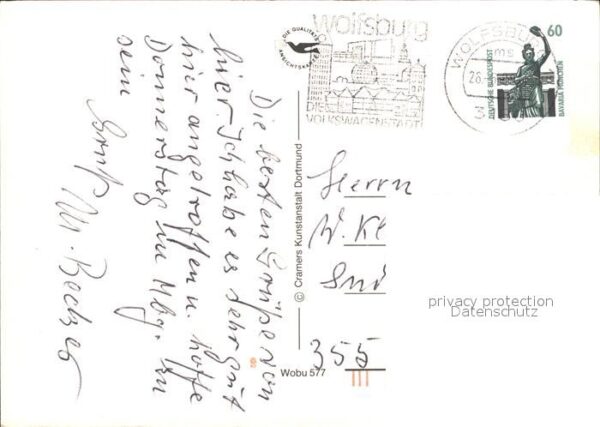 Die besten Grüße von
hier. Ich habe es sehr gut
hier angetroffen u. hoffe
Donnerstag in Mbg. zu
sein
Ernst
M.
DIE QUALITÄTS
ANSICHTSKARTE
Wobu 577
© Cramers Kunstanstalt Dortmund
wolfsburg
DIE
VOLKSWAGENSTADT
WOLFSBURG
ms
28.
3
60
DEUTSCHE BUNDESPOST
BAVARIA MÜNCHEN
Herrn
W. Kl
355
privacy protection
Datenschutz